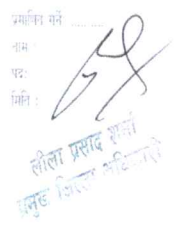 प्रमाणित गर्ने ............
नाम :
पद :
मिति :
लीला प्रसाद शर्मा
प्रमुख जिल्ला अधिकारी